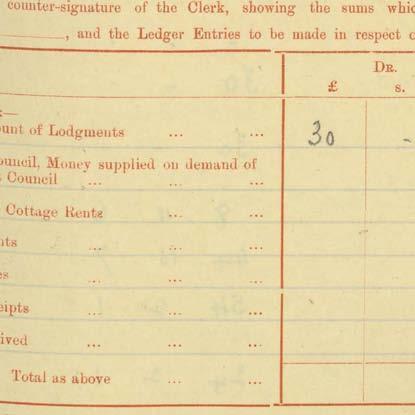 counter-signature of the Clerk, showing the sums
, and the Ledger Entries to be made in respect
DR.
£ s.
unt of Lodgments ... ... 30 -
ouncil, Money supplied on demand of
Council ... ... ...
Cottage Rents ... ...
nts ... ... ...
es ... ... ...
eipts ... ... ...
ived ... ... ...
Total as above ... ...